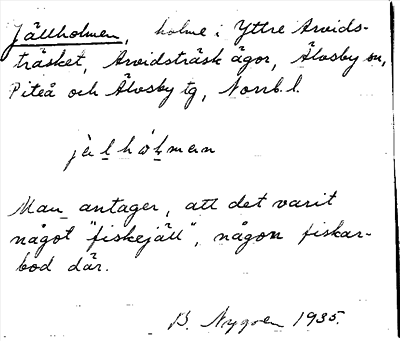 Jällholmen, holme i Yttre Arvids-
träsket, Arvidsträsk ägor, Älvsby sn,
Piteå och Älvsby tg, Norrb. l.
jä̀l hól̥man
Man antager, att det varit
något "fiskejäll", någon fiskar-
bod där.
B. Nygren 1935.